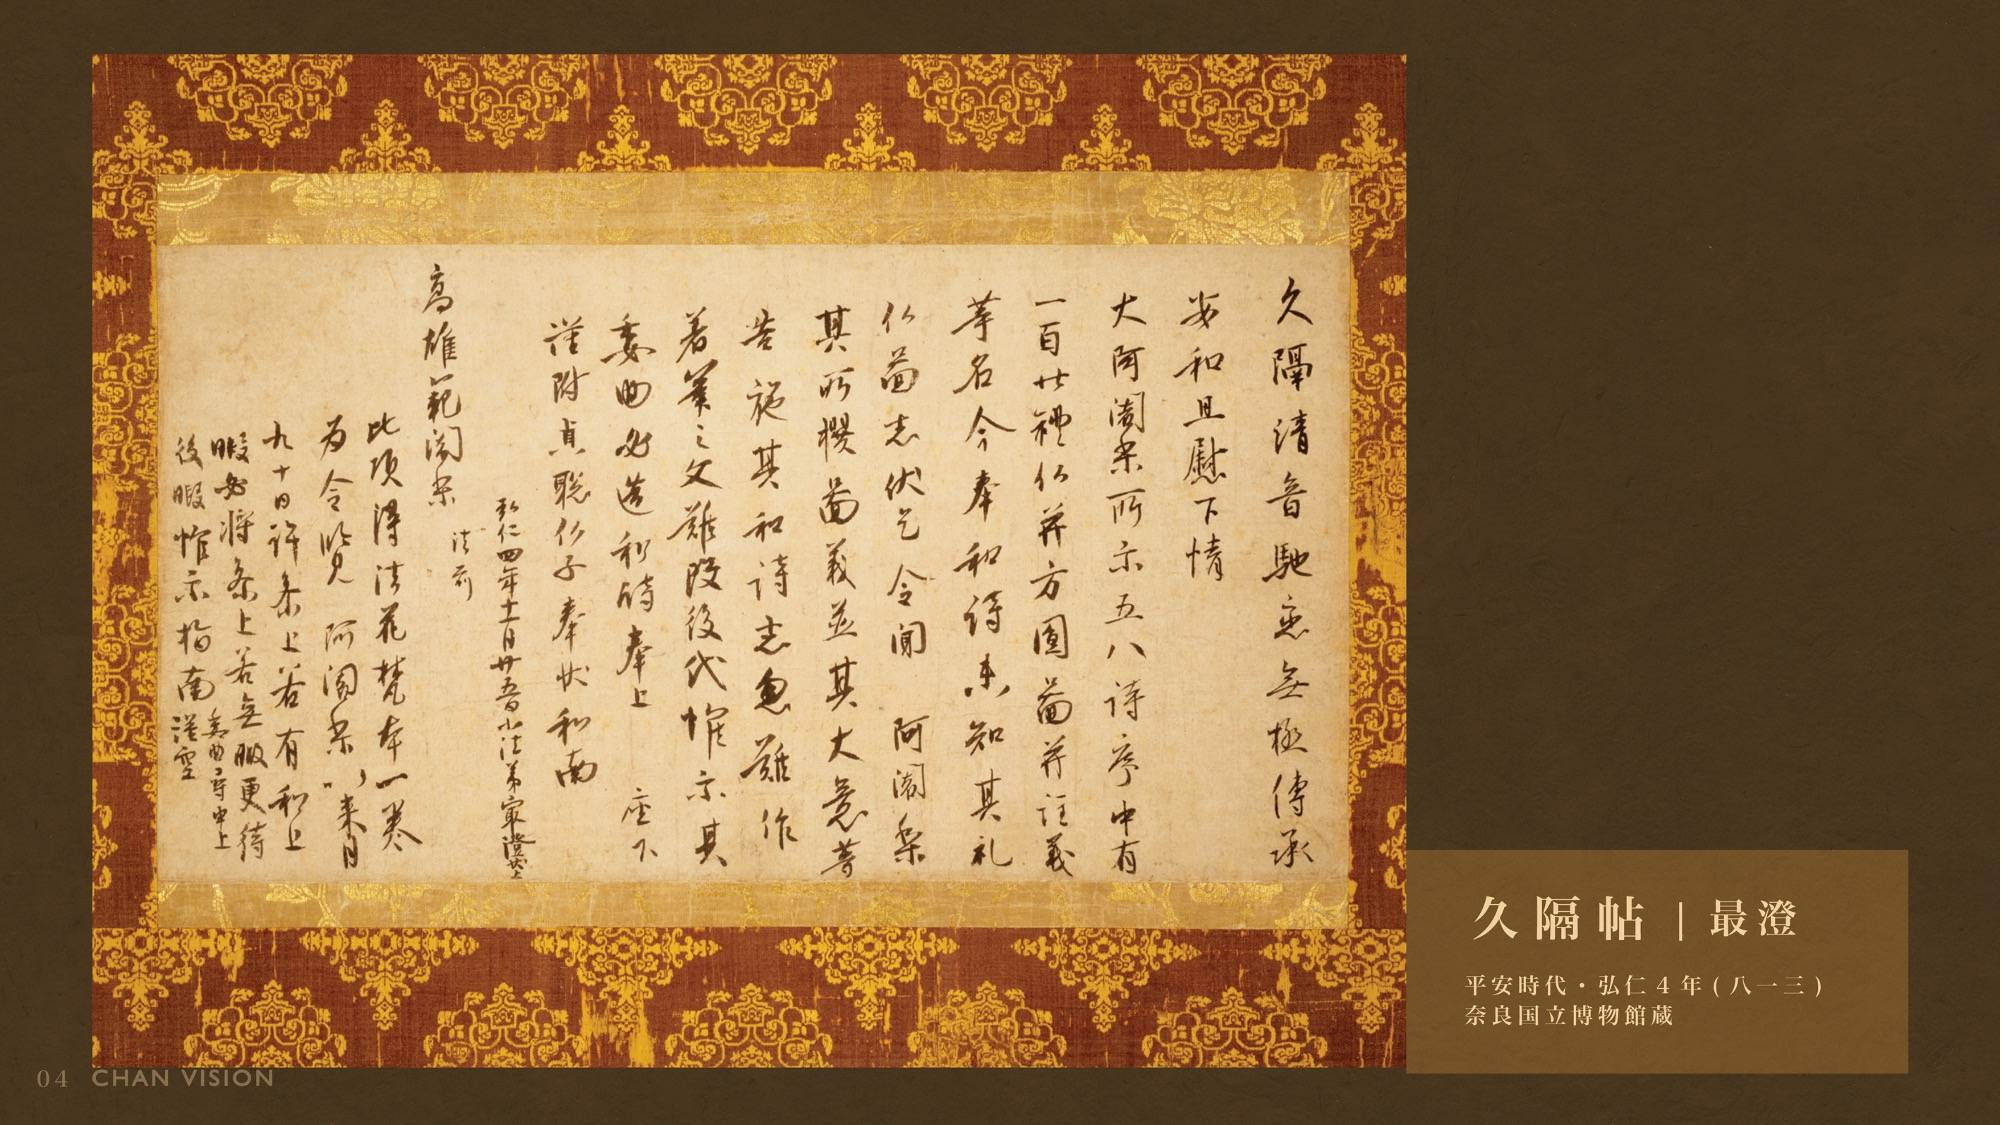 久隔清音馳恋無極傳承
安和且慰下情
大阿闍梨所示五八詩序中有
一百廿禮仏并方圓啚并註義
等名今奉和詩未知其礼
仏啚志伏乞令聞 阿闍梨
其所撰啚義並其大意等
告施其和詩者忽難作
著筆之文難改後代惟示其
委曲必造和詩奉上 座下
謹附貞聡仏子奉状和南
弘仁四年十一月廿五日小法弟最澄状上
高雄範闍梨 法前
此頃得法花梵本一巻
為令覧 阿闍梨以来月
九十日許参上若有和上
暇必将参上若無暇更待
後暇惟示指南 謹空
久隔帖 | 最澄
平安時代・弘仁4年(八一三)
奈良国立博物館蔵
04 CHAN VISION